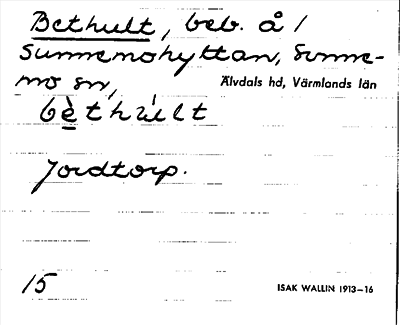 Bethult, beb. å 1
Sunnemohyttan, Sunne-
mo sn, Älvdals hd, Värmlands län
bèthúlt
Jordtorp.
15
ISAK WALLIN 1913–16